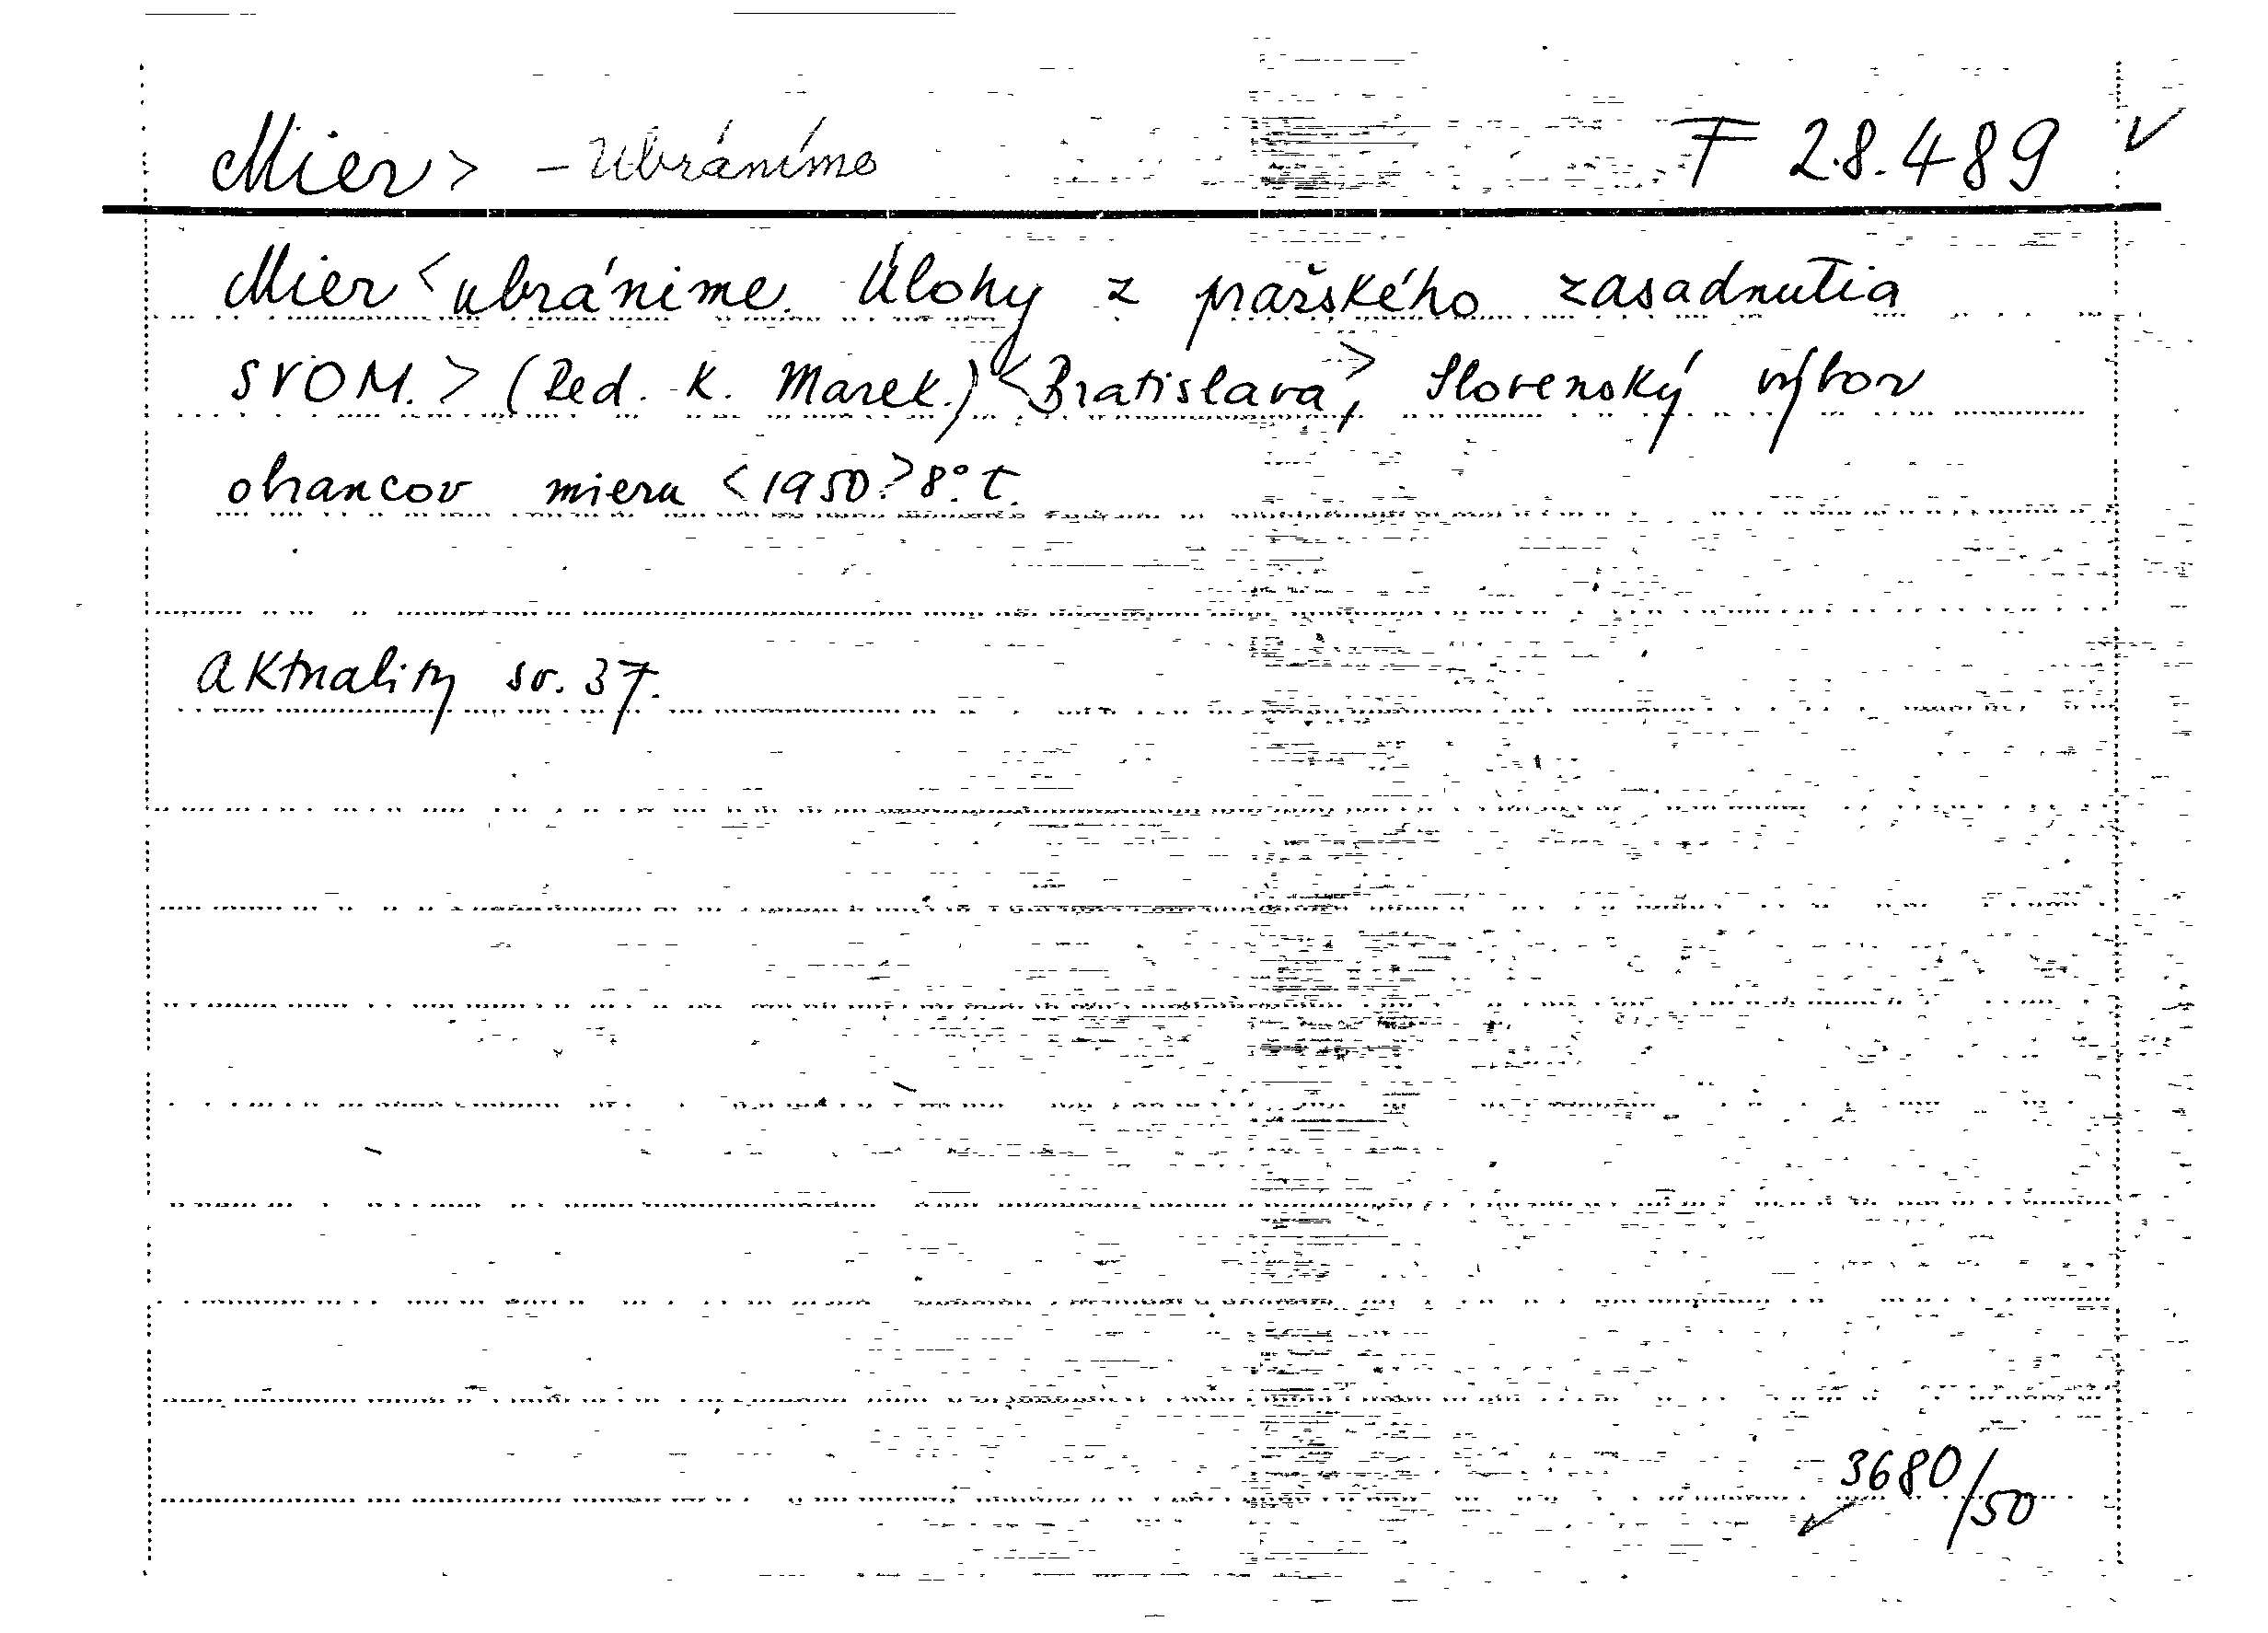 Mier> - Ubráníme F 28.489 V
Mier <ubránime. Úlohy z pražského zasadnutia
SVOM.> (Red. K. Marek.) <Bratislava>, Slovenský výbor
obrancov mieru <1950> 8°. t.
Aktuality sv. 37.
3680/50